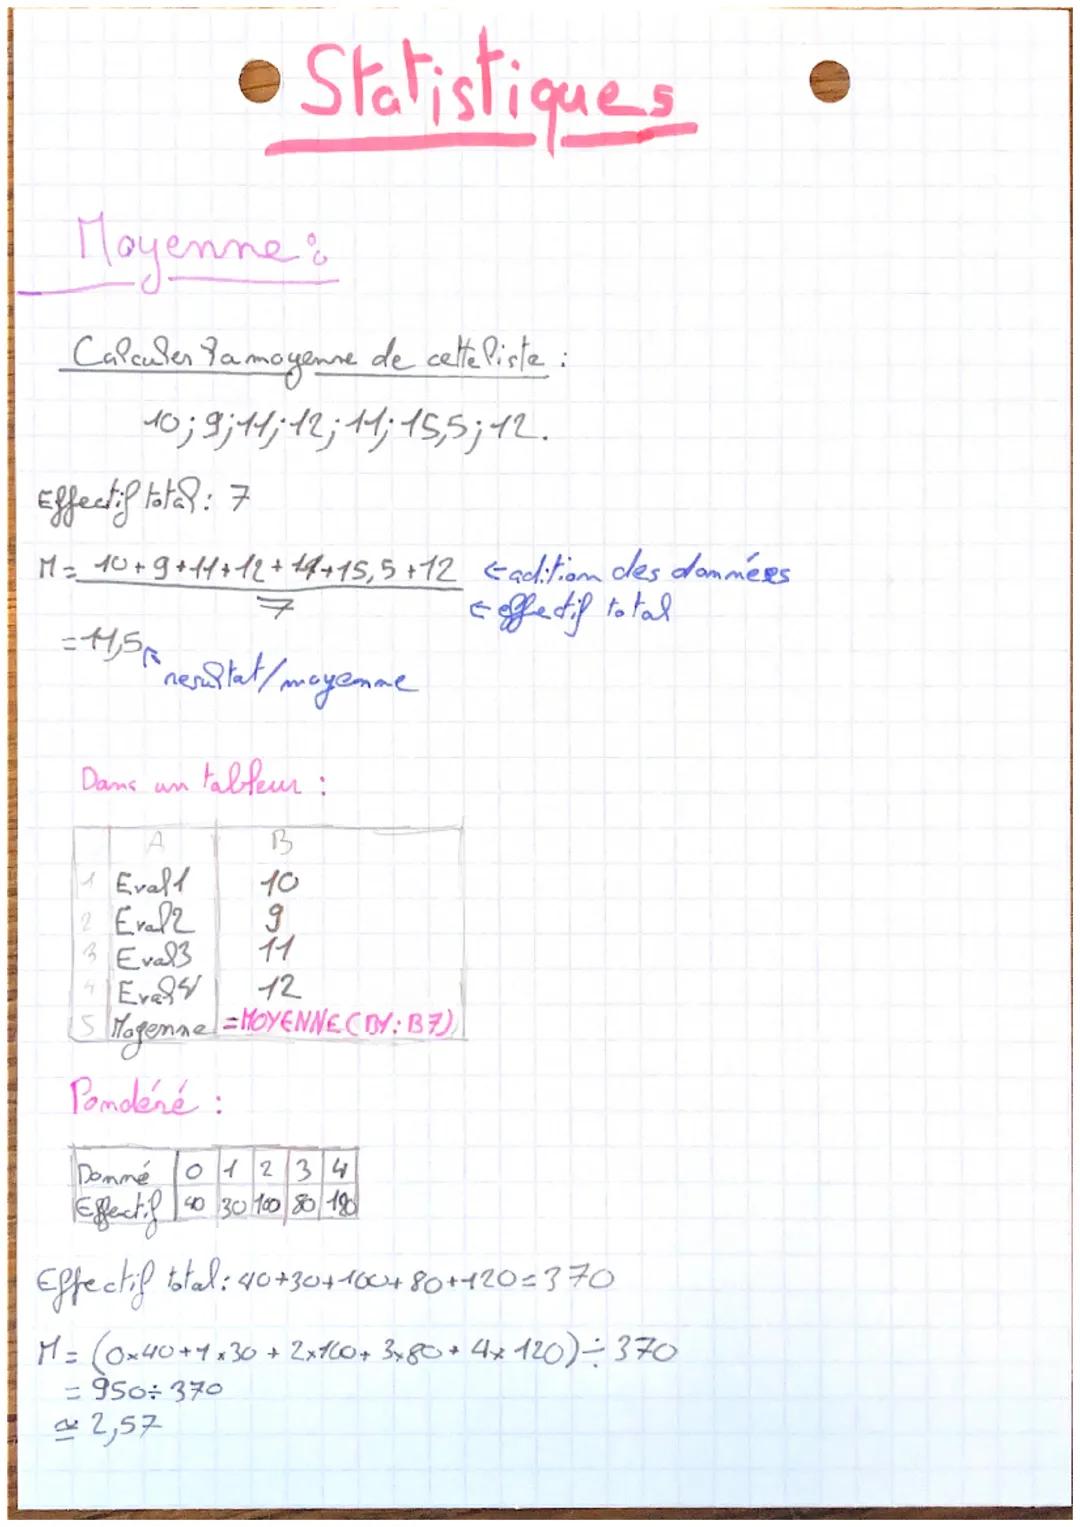 Statistiques
Moyenne :
Calculer la moyenne de cette liste :
10 ; 9 ; 11 ; 12 ; 11 ; 15,5 ; 12.
Effectif total : 7
M = 10 + 9 + 11 + 12 + 11 + 15,5 + 12 ← adition des données
7 ← effectif total
= 11,5
resultat/moyenne
Dans un tableur :
A B
1 Eval1 10
2 Eval2 9
3 Eval3 11
4 Eval4 12
5 Moyenne =MOYENNE( : B7)
Pondéré :
Donné 0 1 2 3 4
Effectif 40 30 100 80 120
Effectif total : 40+30+100+80+120=370
M = (0×40+1×30 + 2×100+ 3×80 + 4× 120) ÷ 370
= 950÷370
≃ 2,57